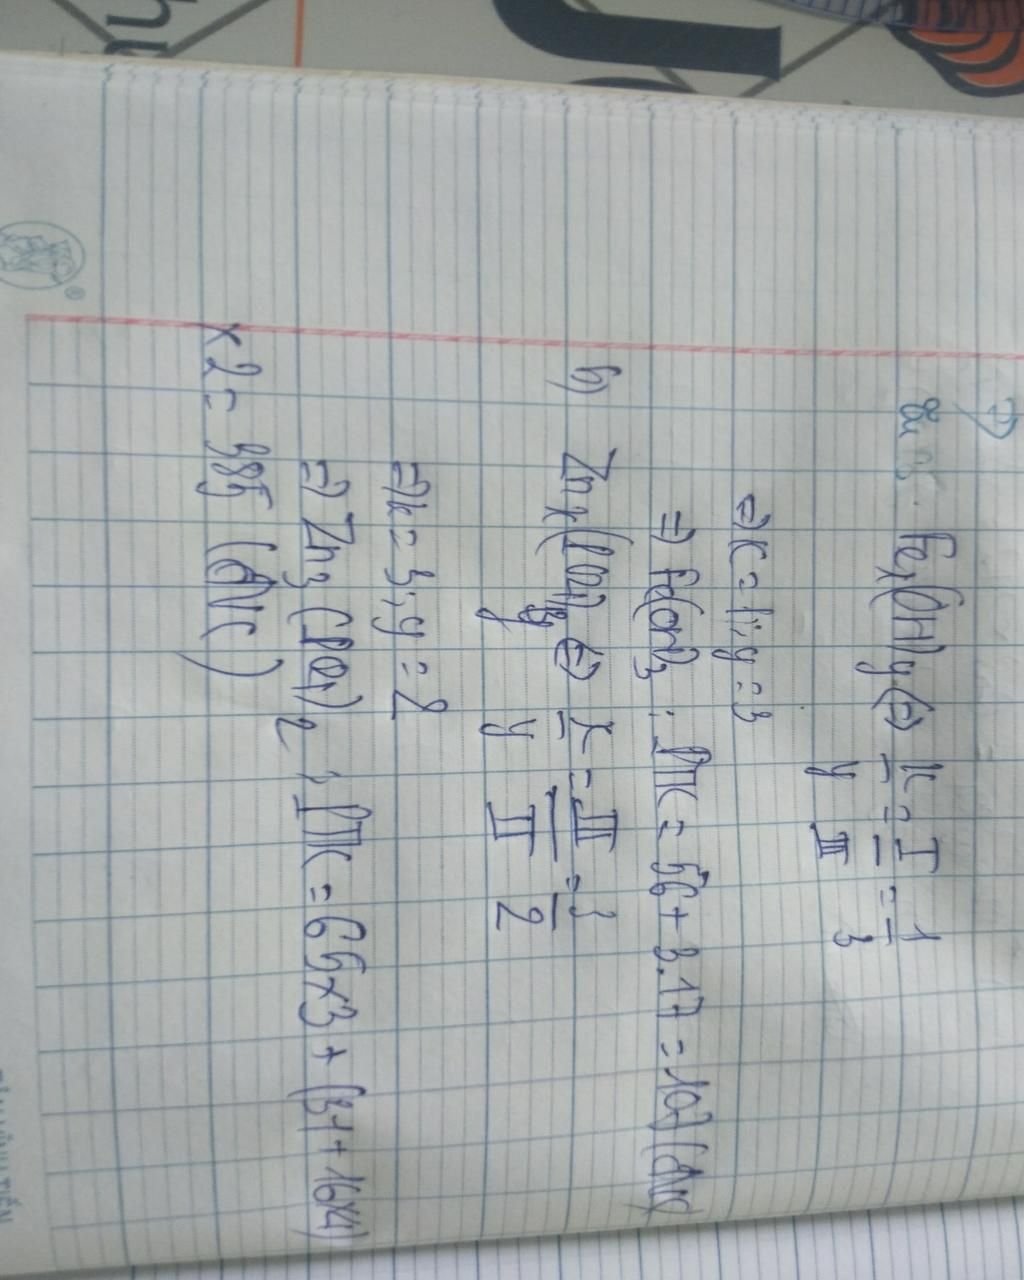 Fex(OH)y ⇔ x/y = I/III = 1/3
⇒ x = 1; y = 3
⇒ Fe(OH)3 : PTK = 56 + 3.17 = 107 (đvC)
b) Znx(PO4)y ⇔ x/y = III/II = 3/2
⇒ x = 3; y = 2
⇒ Zn3(PO4)2 ; PTK = 65x3 + (31 + 16x4)
x2 = 385 (đVC)